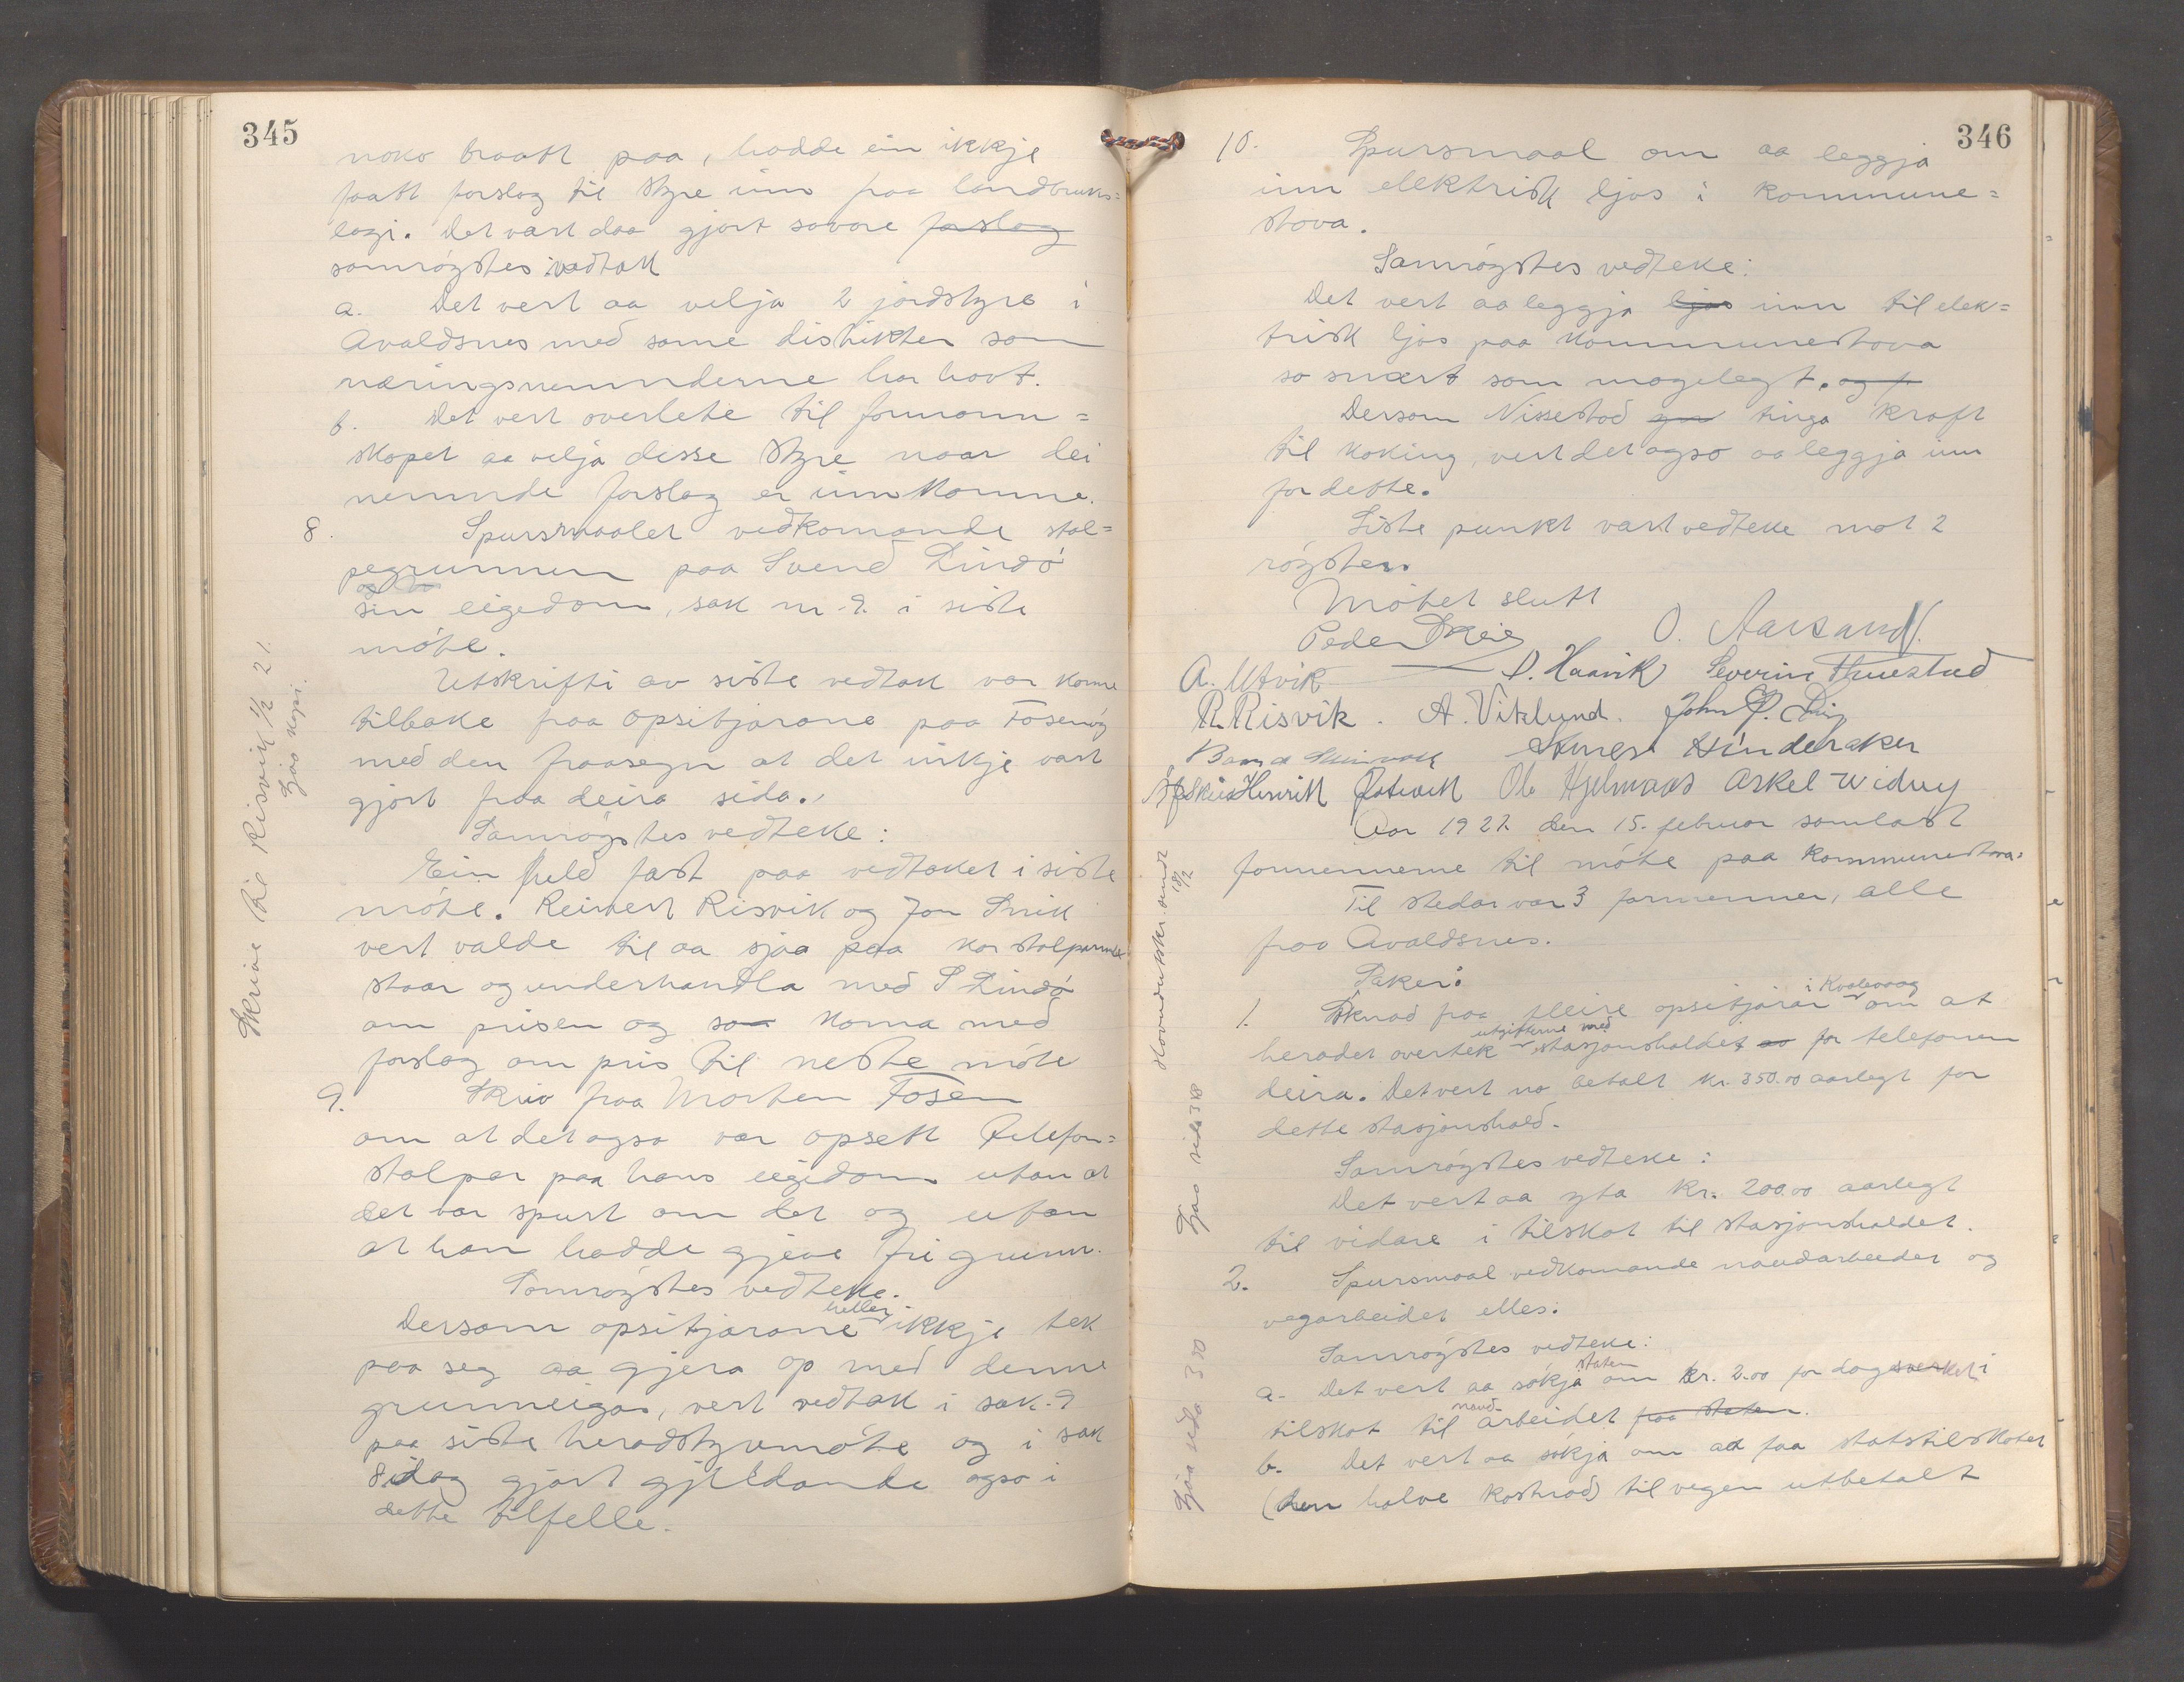 345
noko braatt paa, hadde ein ikkje
faatt forslag til styre inn fraa landbruks=
lagi. Det vart daa gjort sovore forslag
samrøystes vedtak
a. Det vert aa velja 2 jordstyre i
Avaldsnes med same distrikter som
næringsnemnderne har havt.
b. Det vert overlete til formann=
skapet aa velja desse styre naar dei
nemnde forslag er innkomne.
8. Spursmaalet vedkomande stol=
pegrunnen paa Svend Lindø
sin eigedom, sak nr. 9. i siste
møte.
Utskrifti av siste vedtak var kome
tilbake fraa opsitjarane paa Fosenøy
med den fraasegn at det inkje vart
gjort fraa deira sida.
Samrøystes vedteke:
Ein held fast paa vedtaket i siste
møte. Reinert Risvik og Jon
vert valde til aa sjaa paa kor stolparne
staar og underhandla med S Lindø
om prisen og so koma med
forslag om pris til neste møte
9. Skriv fraa Morten Fosen
om at det ogso var opsett telefon=
stolpar paa hans eigedom utan at
det var spurt om det og utan
at han hadde gjeve fri grunn.
Samrøystes vedteke.
Dersom opsitjarane heller ikkje tek
paa seg aa gjera op med denne
grunneigar, vert vedtak i sak 9
paa siste heradstyremøte og i sak
8 idag gjort gjeldande ogso i
dette tilfelle.
Skrive til Risvik 1/2 21.
Sjaa kopi.
346
10. Spursmaal om aa leggja
inn elektrisk ljos i kommune=
stova.
Samrøystes vedteke:
Det vert aa leggja ljos inn til elek=
trisk ljos paa kommunestova
so snart som mogelegt. og f
Dersom Nissestad tinga kraft
til koking, vert det ogso aa leggja inn
for dette.
Siste punkt vart vedteke mot 2
røyster.
Møtet slutt
Peder Skeie O. Aarsand
A. Utvik O. Haavik Severin Thuestad
R. Risvik. A. Viklund. John P.
Hinderaker
Henrik Ole Hjelmaas Askel Widuy
Aar 1921. den 15. februar samlast
formennerne til møte paa kommunestova.
Til stedar var 3 formenner, alle
fraa Avaldsnes.
Saker:
1. Søknad fraa fleire opsitjarar i Kvalavaag om at
heradet overtek utgifterne med stasjonshaldet av for telefonen
deira. Det vert no betalt kr. 350.00 aarlegt for
dette stasjonshald.
Samrøystes vedteke:
Det vert aa yta kr. 200.00 aarlegt
til vidare i tilskot til stasjonshaldet.
2. Spursmaal vedkomande naudarbeidet og
vegarbeidet elles.
Samrøystes vedteke:
a. Det vert aa søkja staten om kr. 2.00 for dagsverket i
tilskot til naud-arbeidet fraa staten.
b. Det vert aa søkja om aa faa statstilskotet
(den halve kostnad) til vegen utbetalt
Hovudutskr. sendt 18/2
Sjaa sida 318
Sjaa sida 300